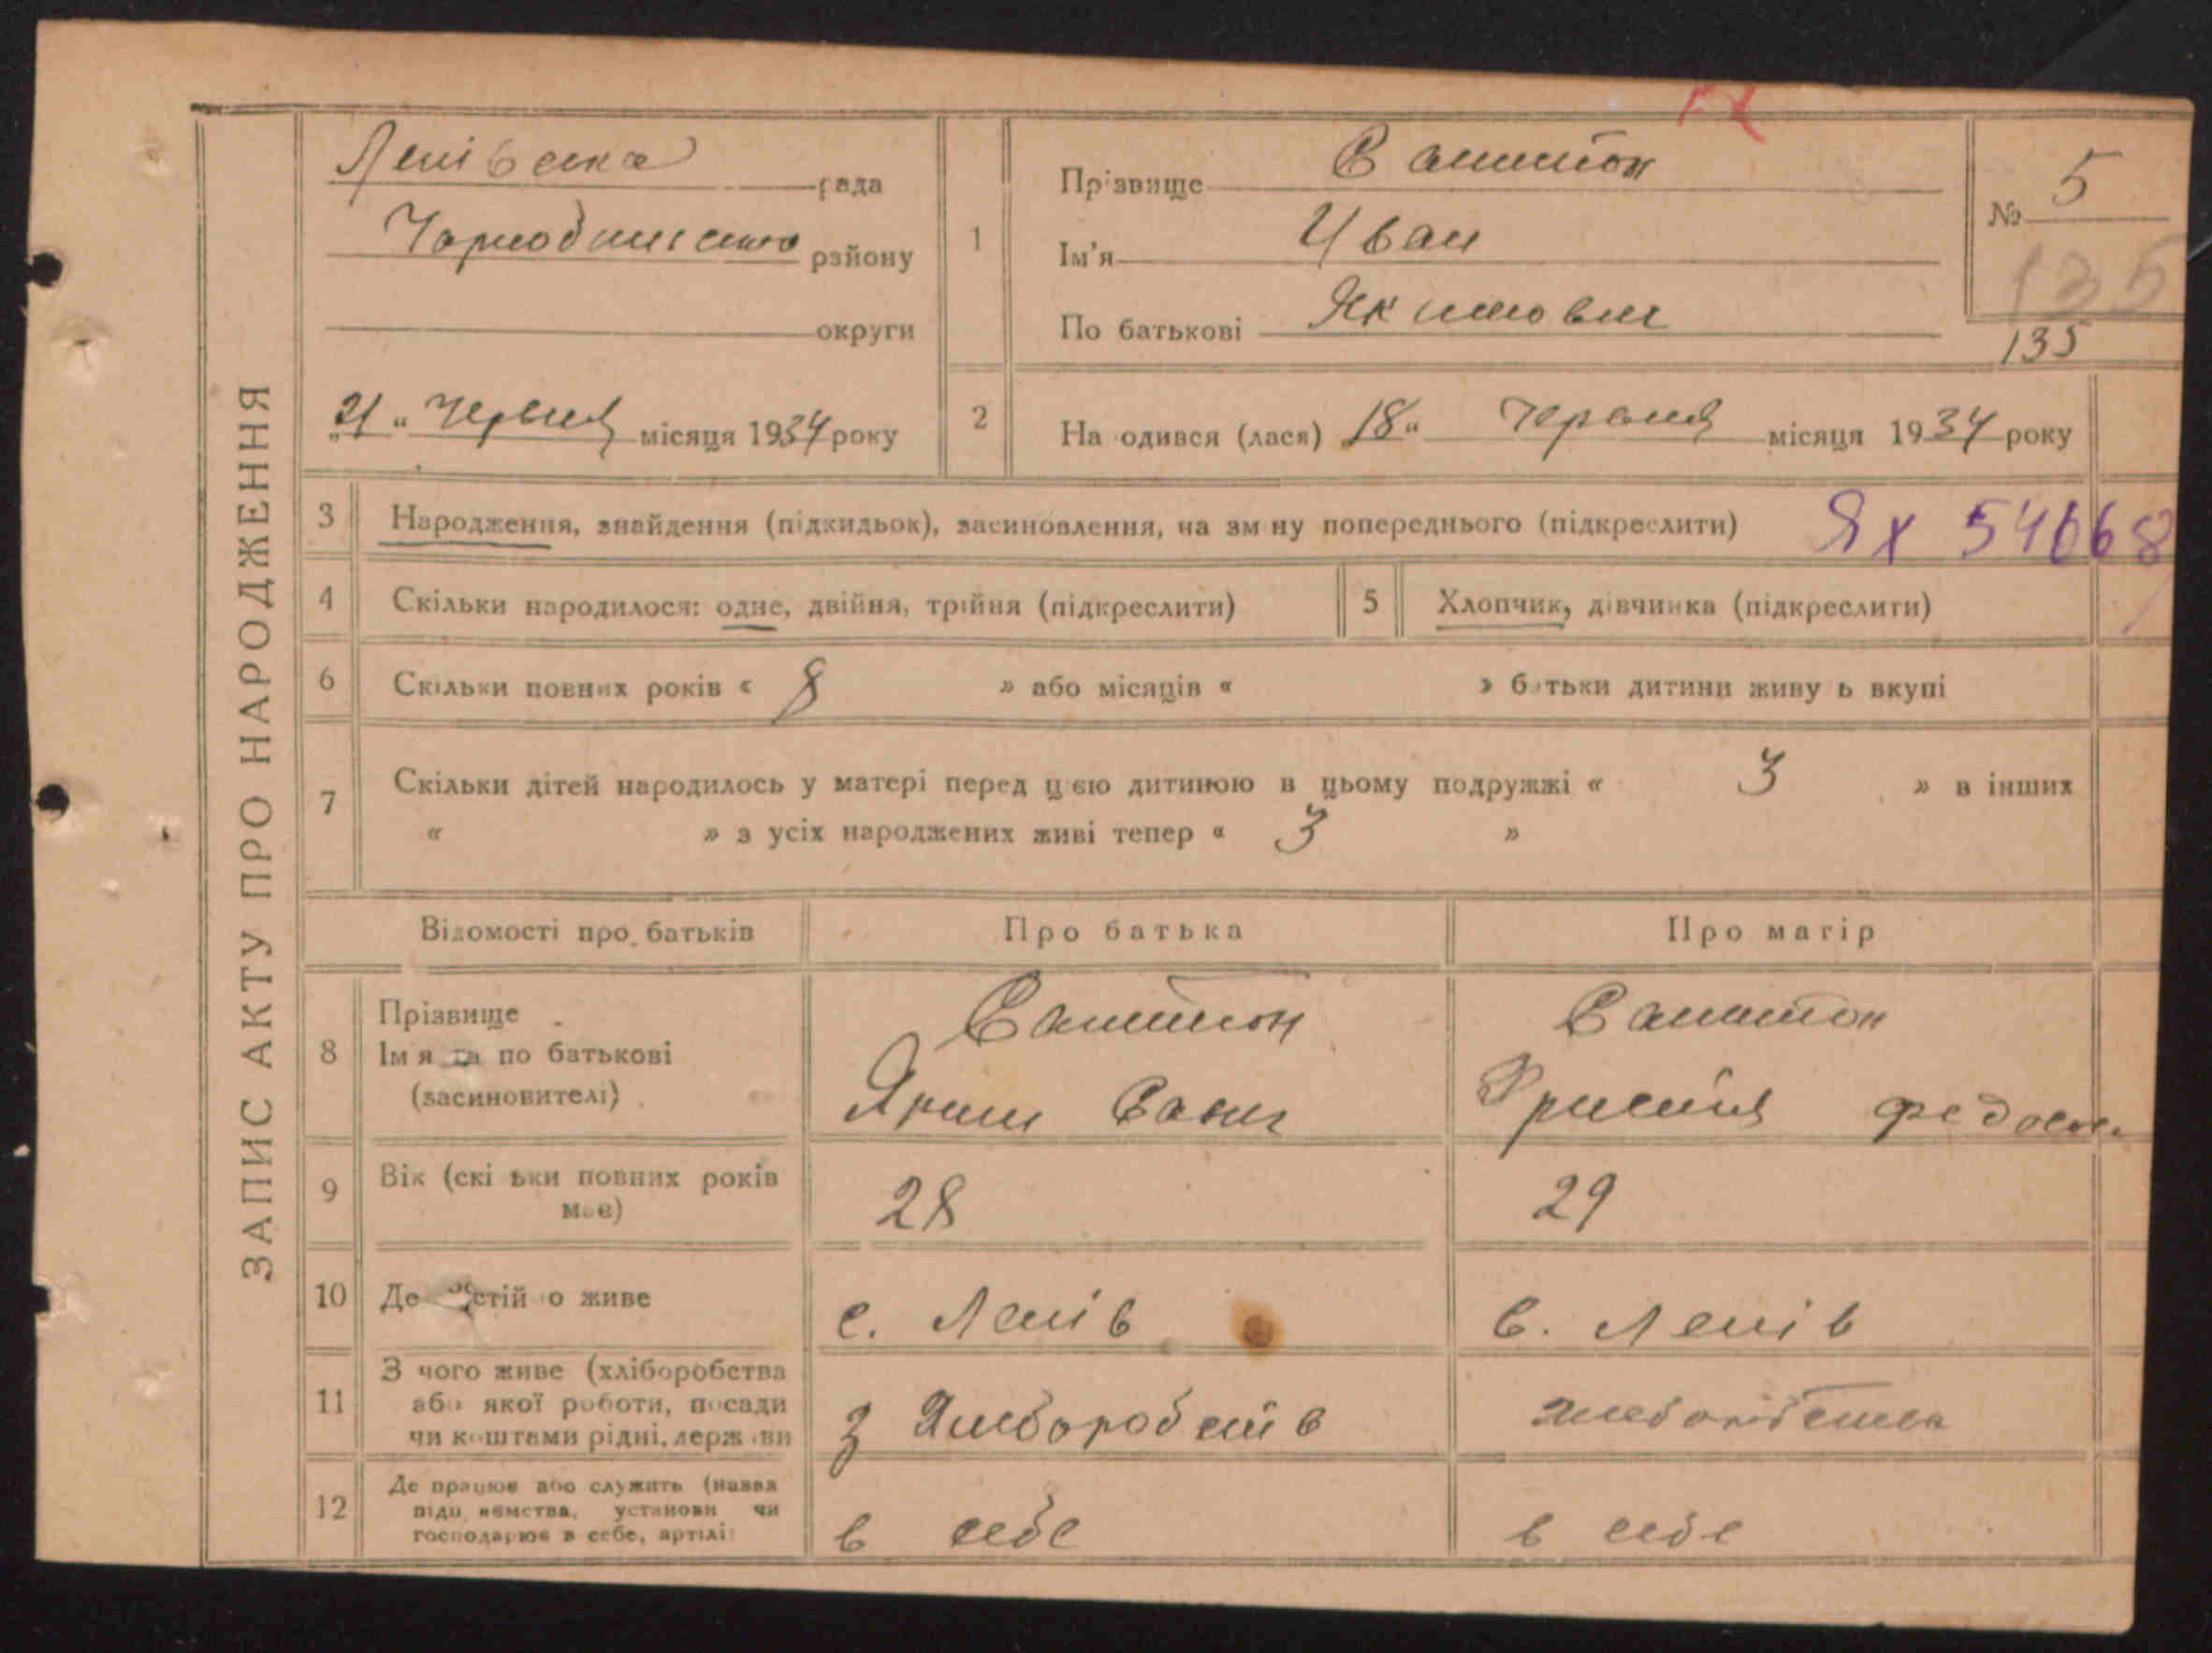 ЗАПИС АКТУ ПРО НАРОДЖЕННЯ
Лепівська рада
району
округи
„21“ червня місяця 1934 року
1
Прізвище
Ім'я Иван
По батькові Якимович
№ 5
135
135
2
На одився (лася) 18“ червня місяця 1934 року
3 Народження, знайдення (підкидьок), засиновлення, на зм ну попереднього (підкреслити) ЯХ 54668
4 Скільки народилося: одне, двійня, трійня (підкреслити)
5 Хлопчик, дівчинка (підкреслити)
6 Скільки повних років « 8 » або місяців « » батьки дитини живу ь вкупі
7 Скільки дітей народилось у матері перед цією дитиною в цьому подружжі « 3 » в інших
« » з усіх народжених живі тепер « 3 »
Відомості про батьків
Про батька
Про матір
8 Прізвище
Ім я та по батькові
(засиновителі)
Яким
Федос.
9 Вік (скі ьки повних років
має)
28
29
10 Де постій о живе
с. Лепів
с. Лепів
11 З чого живе (хліборобства
або якої роботи, посади
чи коштами рідні, держ ви
З Хлиборобств
хлиборобства
12 Де працює або служить (назва
підп иємства, установи чи
господарює в себе, артілі
в себе
в себе